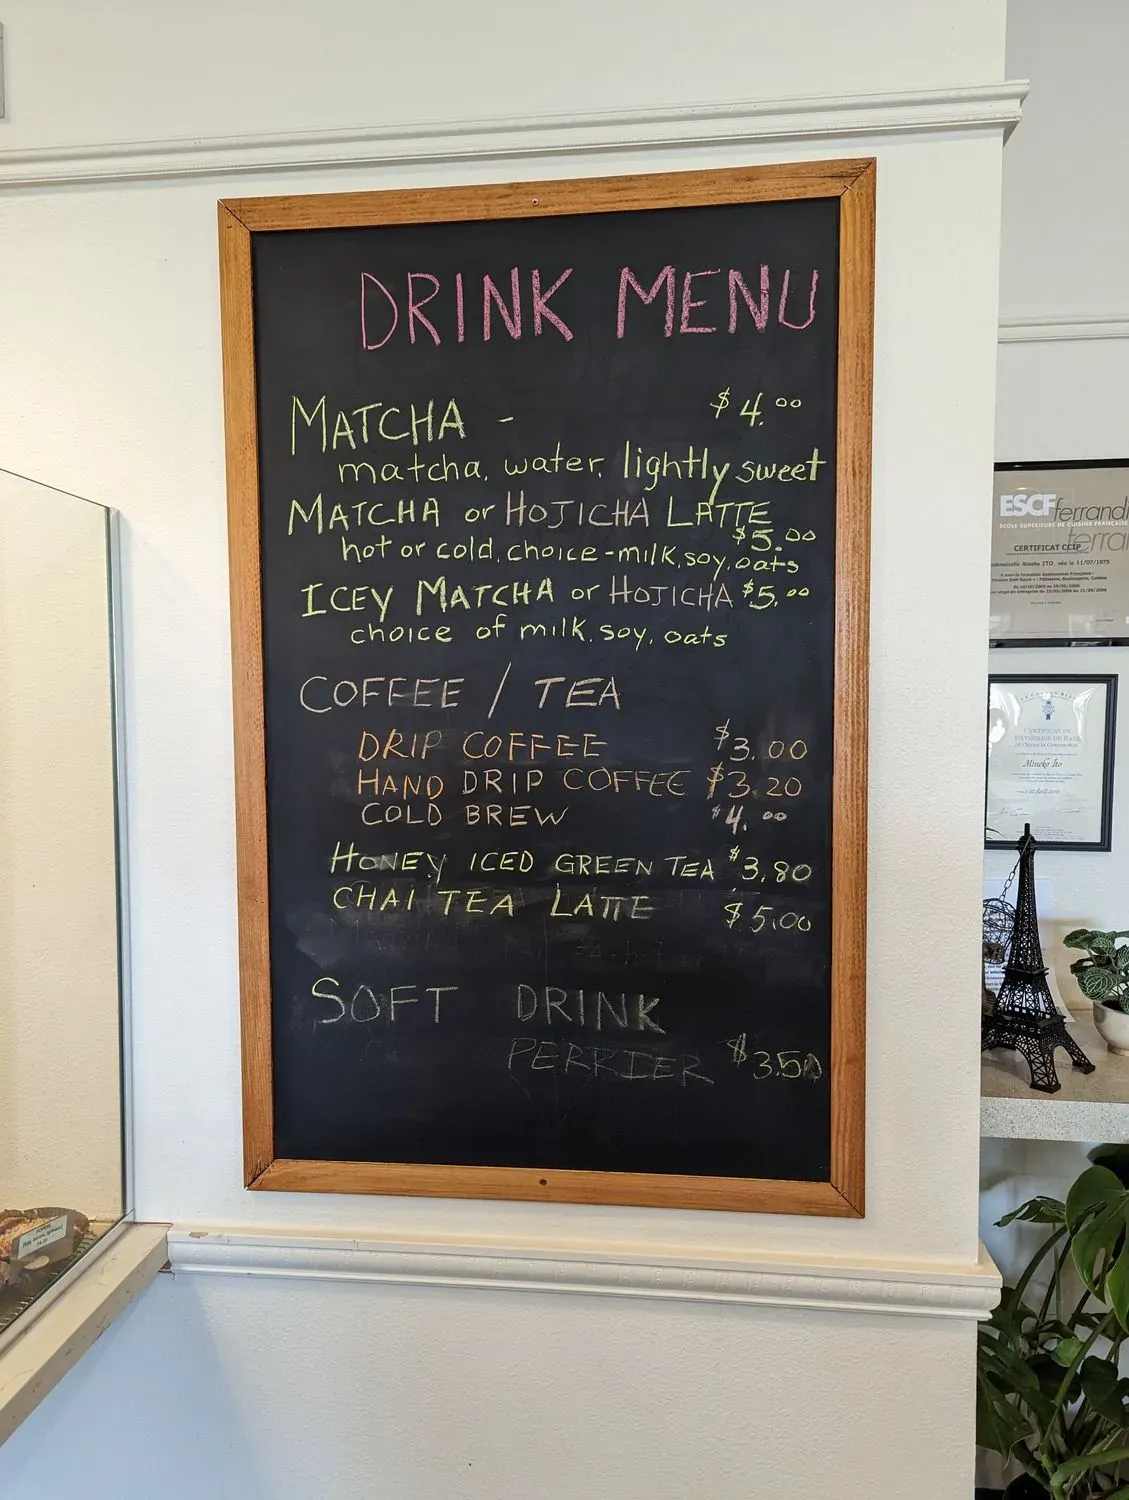 DRINK MENU
MATCHA - $4.00
matcha, water, lightly sweet
MATCHA or HOJICHA LATTE
$5.00
hot or cold, choice-milk, soy, oats
ICEY MATCHA or HOJICHA $5.00
choice of milk, soy, oats
COFFEE / TEA
DRIP COFFEE $3.00
HAND DRIP COFFEE $3.20
COLD BREW $4.00
HONEY ICED GREEN TEA $3.80
CHAI TEA LATTE $5.00
SOFT DRINK
PERRIER $3.50
ESCF ferrandi
ÉCOLE SUPÉRIEURE DE CUISINE FRANÇAISE
CERTIFICAT CCIP
Mineko ITO, née le 11/07/1975
CERTIFICAT DE
PÂTISSERIE DE BASE
Mineko Ito